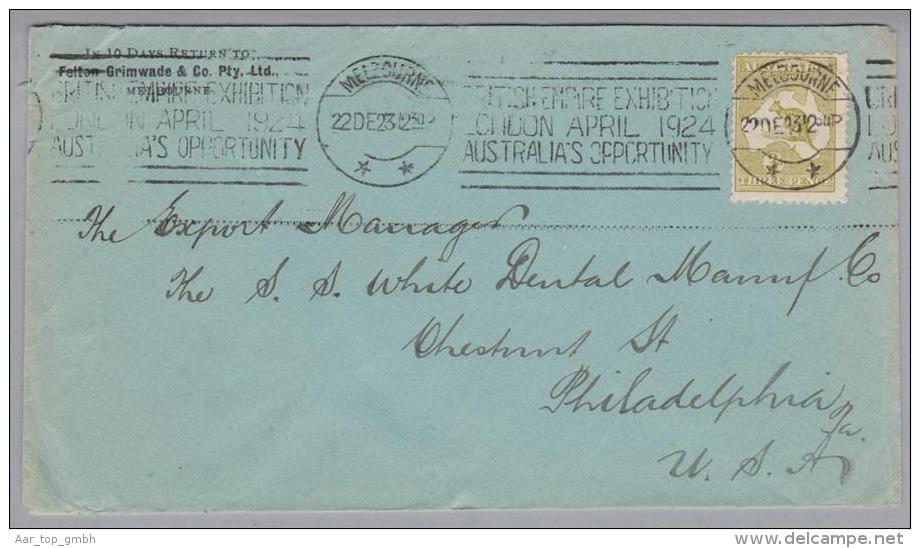 IN 10 DAYS RETURN TO
Felton Grimwade & Co. Pty. Ltd.,
MELBOURNE
BRITISH EMPIRE EXHIBITION
LONDON APRIL 1924
AUSTRALIA'S OPPORTUNITY
MELBOURNE
22DE23 1230P
BRITISH EMPIRE EXHIBITION
LONDON APRIL 1924
AUSTRALIA'S OPPORTUNITY
MELBOURNE
22DE23 1230P
THREE PENCE
BRI
LO
AUS
The Export Manager
The S. S. White Dental Manuf. Co
Chestnut St
Philadelphia
Pa.
U. S. A
Aar_top_gmbh
www.delcampe.net